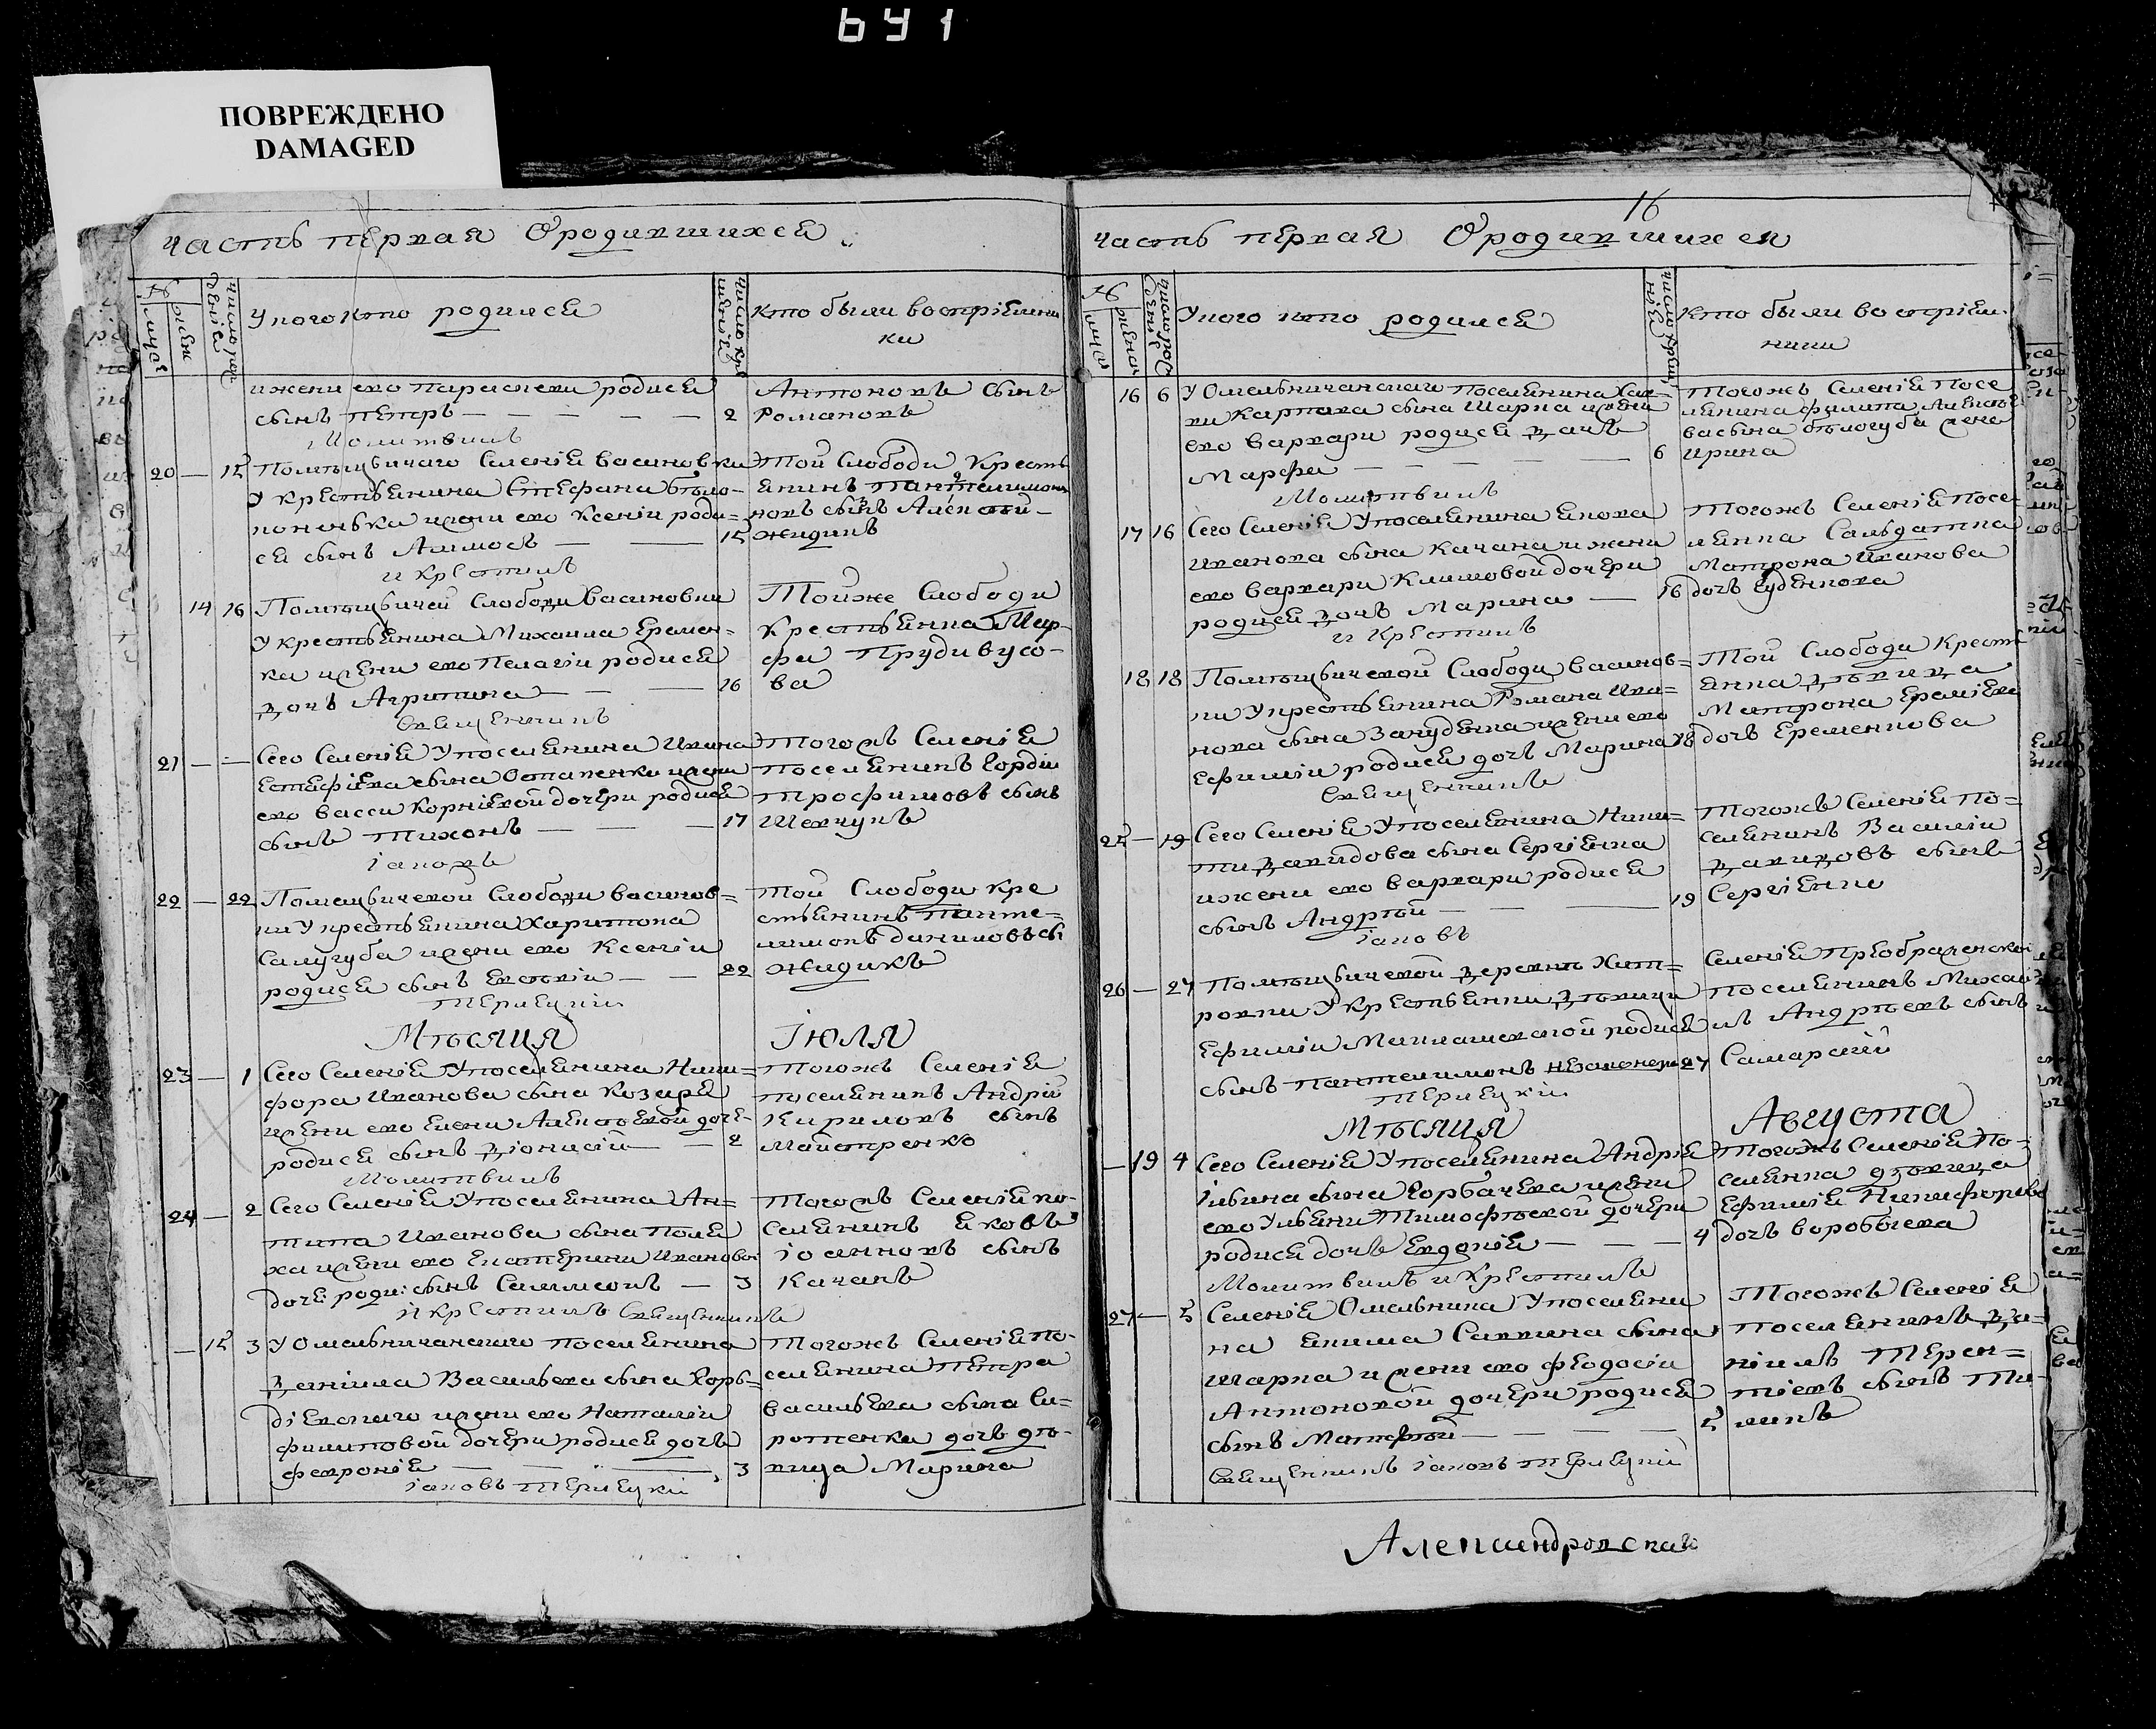 641
ПОВРЕЖДЕНО
DAMAGED
часть первая О родившихся
№
мужеск
женск
число рожденія
У кого кто родился
число крещенія
кто были воспріемни
ки
и жени его Параскеви родися
сынъ Петръ — — — — — 2
Антоновъ сынъ
Романовъ
Молитвилъ
20 — 15 Помѣщичаго Селенія васиновки
У крестьянина Стефана бѣло-
коненька и жени его Ксеніи роди=
ся сынъ Аммосъ — — 15
Той Слободи Кресть
янинъ Пантелимонъ
новъ сынъ Алексѣй
жидикъ
и Крестилъ
14 16 Помѣщичей Слободи Васиновки
У крестьянина Михаила Еремен=
ка и жени его Пелагіи родися
дочь Агрипина — — — 16
Тойже Слободи
Крестьянка Мар-
фа Прудивусо-
ва
Священникъ
21 — — Сего Селенія У поселянина Ивана
Естафіева сына Остапенки и жени
его васси Корніевой дочери родися
сынъ Тихонъ — — — 17
Тогожъ Селенія
поселянинъ Гордій
Трофимовъ сынъ
Шевчукъ
Іаковъ
22 — 22 Помещичекой Слободи васинов=
ки У крестьянина Харитона
Самугуба и жени его Ксеніи
родися сынъ Евсевій — — 22
Той Слободи Кре
стьянинъ Панте-
лимонъ даниловъ сы
жидикъ
Терлецкій
Мѣсяця Іюля
23 — 1 Сего Селенія У поселянина Ники=
фора Иванова сына Козыря
и жени его Елени Алексѣевой доче-
родися сынъ Діонисій — — 2
Тогожъ Селенія
поселянинъ Андрій
Кириловъ сынъ
Майстренко
Молитвилъ
24 — 2 Сего Селенія У поселянина Ан=
типа Иванова сына Поля
ха и жени его Екатерини Ивановой
доче роди: сынъ Самисонъ — 3
Тогожъ Селенія по-
селянинъ Яковъ
Іоанновъ сынъ
Качанъ
И крестилъ Священникъ
— 15 3 У Омельничанскаго поселянина
Даніила Васильева сына Горь=
діевскаго и жени его Наталіи
филиповой дочери родися дочь
Февронія — — — 3
Тогожъ Селенія по-
селянина Петра
васильева сына Си-
ротенка дочь дѣ-
вица Марина
Іаковъ Терлецкій
16
часть первая О родившихся
№
мужеска
женска
число рожденія
У кого кто родился
число крещенія
кто были воспріем-
ники
16 6 У Омельничанскаго Поселянина Сав-
ки Карпова сына Шарпа и жени
его Варвари родися дочь
Марфа — — — — — 6
Тогожъ Селенія Посе
лянина филипа Алексѣе
ва сына бѣлогуба жена
Ирина
Молитвилъ
17 16 Сего Селенія У поселянина Якова
Иванова сына Качана и жени
его варвари Климовой дочери
родися дочь Марина — 16
Тогожъ Селенія Посе-
лянка Сальдатка
Матрона Иванова
дочь Гуденкова
и Крестилъ
18 18 Помѣщичекой Слободи васинов=
ки У крестьянина Романа Ива=
нова сына Закуденка и жени его
Ефиміи родися дочь Марина 18
Той Слободи Крестъ
янка дѣвица
Матрона Ереміева
дочь Еременкова
Священникъ
25 — 19 Сего Селенія У поселянина Ники=
ти Давидова сына Сергіенка
и жени его варвари родися
сынъ Андрѣй — — — 19
Тогожъ Селенія По=
селянинъ Василій
Давидовъ сынъ
Сергіенко
Іаковъ
26 — 27 Помѣщичекой деревнѣ Хит=
ровки У крестьянки дѣвици
Ефиміи родися
сынъ Пантелимонъ незаконнор 27
Селенія Преображенской
поселянинъ Михаи
лъ Андрѣевъ сынъ
Самарскій
Терлецкій
Мѣсяця Августа
— 19 4 Сего Селенія У поселянина Андрея
Ільина сына Горбачева и жени
его Ульяни Тимофѣевой дочери
родися дочь Евдокія — — — 4
Тогожъ Селенія По-
селянка дѣвица
Ефимія Никифорова
дочь воробьева
Молитвилъ и Крестилъ
27 — 5 Селенія Омельника У поселяни
на Якима Саввина сына
Шарпа и жени его Феодосіи
Антоновой дочери родися
сынъ Матфѣй — — — — 5
Тогожъ Селенія
поселянинъ Да-
ніилъ Терен=
тіевъ сынъ Ти-
микъ
Священникъ Іаковъ Терлецкій
Александровскаго